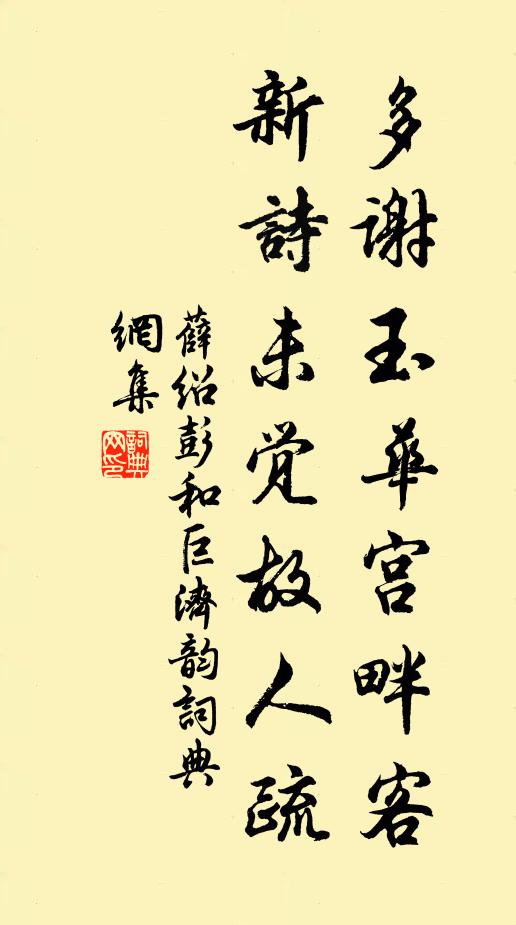 多谢玉華宫畔客
新詩未觉故人疏
薛绍彭和巨濟韵詞典
網集
詞典
网印